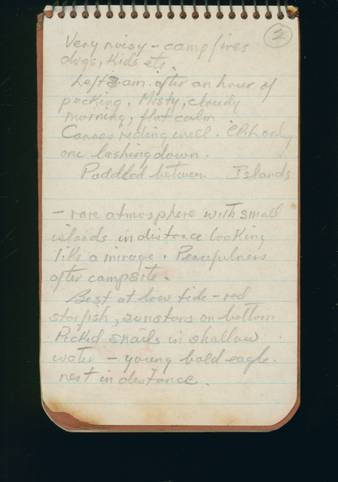 2
Very noisy - campfires
dogs, kids etc.
Left 8 am. after an hour of
packing, Misty, cloudy
morning, flat calm
Canoes riding well. only
one lashing down.
Paddled between Islands
- rare atmosphere with small
islands in distance looking
like a mirage. Peacefulness
after campsite.
Best at low tide - red
starfish, sunstars on bottom
Picked snails in shallow
water - young bald eagle.
nest in distance.